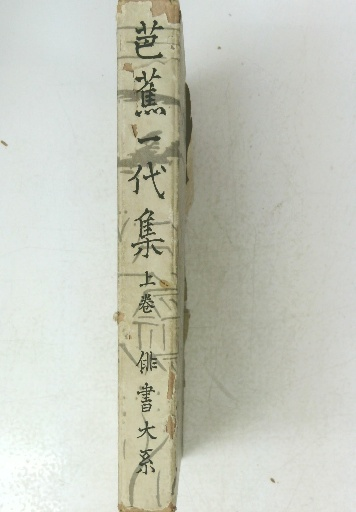 芭蕉一代集 上巻 俳書大系